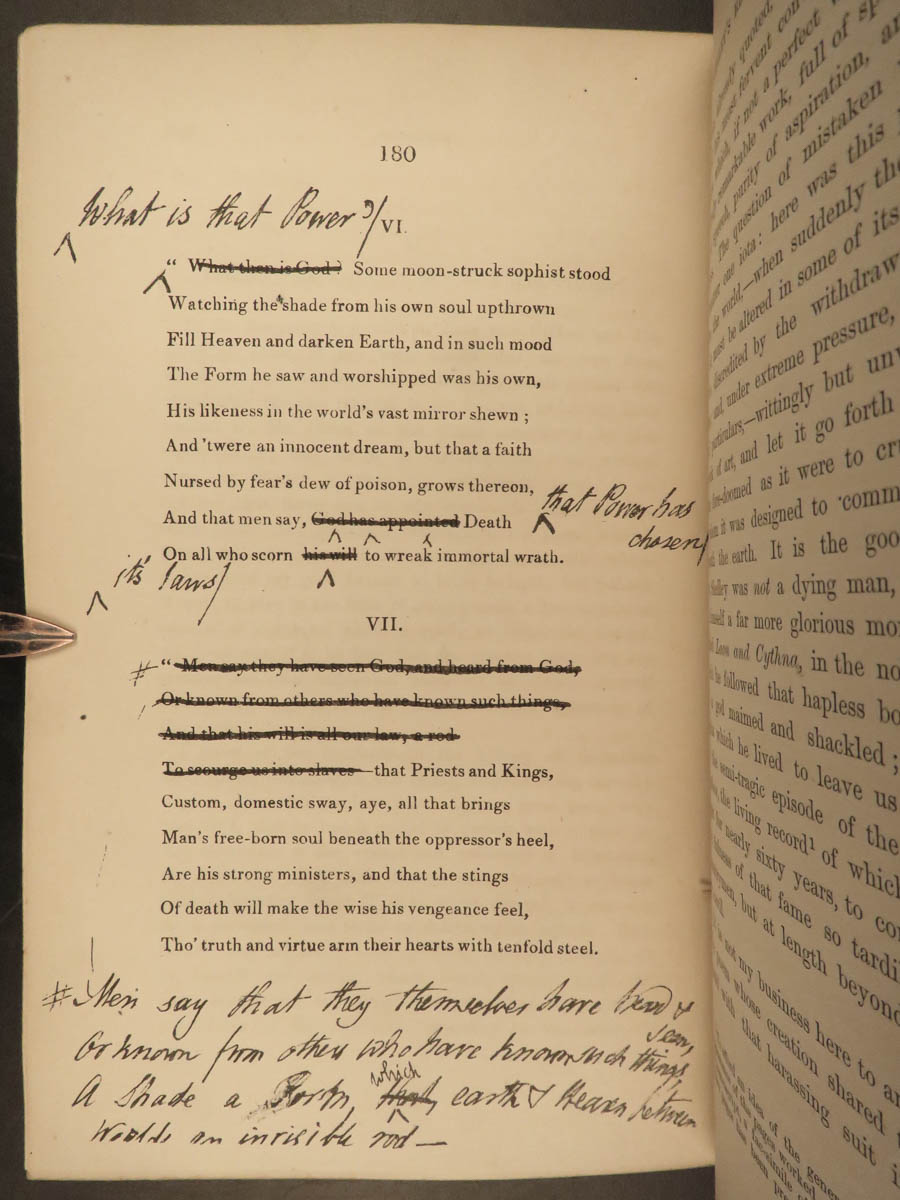 180
What is that Power?/ VI.
" What then is God? Some moon-struck sophist stood
Watching the shade from his own soul upthrown
Fill Heaven and darken Earth, and in such mood
The Form he saw and worshipped was his own,
His likeness in the world's vast mirror shewn ;
And 'twere an innocent dream, but that a faith
Nursed by fear's dew of poison, grows thereon,
that Power has
And that men say, God has appointed Death
chosen/
On all who scorn his will to wreak immortal wrath.
it's laws/
VII.
# " Men say they have seen God, and heard from God,
Or known from others who have known such things,
And that his will is all our law, a rod
To scourge us into slaves—that Priests and Kings,
Custom, domestic sway, aye, all that brings
Man's free-born soul beneath the oppressor's heel,
Are his strong ministers, and that the stings
Of death will make the wise his vengeance feel,
Tho' truth and virtue arm their hearts with tenfold steel.
# Men say that they themselves have heard &
seen,
Or known from others who have known such things
which
A Shade a Form, that, earth & Heaven between
Wields an invisible rod —
already quoted,
most fervent con
which, if not a perfect
remarkable work, full of sp
purity of aspiration, an
The question of mistaken
one iota: here was this
the world,—when suddenly the
must be altered in some of its
discredited by the withdraw
and, under extreme pressure,
particulars,—wittingly but unw
of art, and let it go forth
fore-doomed as it were to cru
it was designed to comm
the earth. It is the goo
Shelley was not a dying man,
himself a far more glorious mo
Laon and Cythna, in the no
he followed that hapless bo
maimed and shackled ;
which he lived to leave us
semi-tragic episode of the
the living record¹ of which
for nearly sixty years, to co
of that fame so tardi
but at length beyond
is not my business here to a
whose creation shared
with that harassing suit i
an idea of the gener
of the pages worked
a fac-simile
been pr